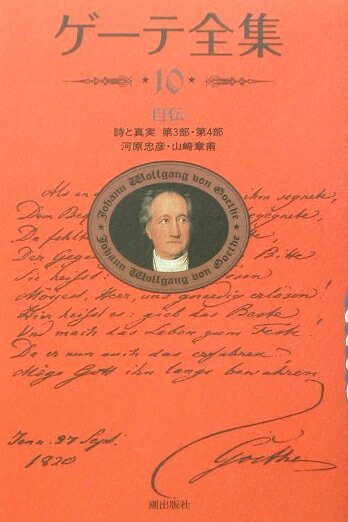 ゲーテ全集
10
自伝
詩と真実 第3部・第4部
河原忠彦・山崎章甫
Johann Wolfgang von Goethe
Johann Wolfgang von Goethe
Als er segnete,
Dem
Da fehlt
Der Bitte.
Sie heißest
Mögest, Herr, uns gnaedig erlösen!
Hier heißt es: gieb das Beste
Und mach das Leben zum Feste!
Da er nun auch das erfahren
Möge Gott ihn lang bewahren
Jena. 27 Sept.
1820
Goethe
潮出版社